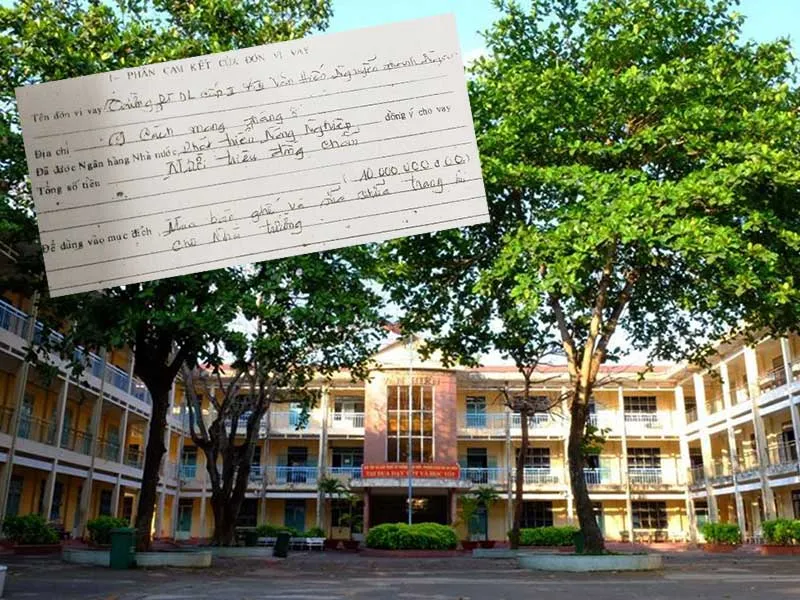 I- PHẦN CAM KẾT CỦA ĐƠN VỊ VAY
Tên đơn vị vay Trường PT DL cấp Văn Hiến
Địa chỉ Cách mạng tháng 8
Đã được Ngân hàng Nhà nước Phát triển Nông Nghiệp đồng ý cho vay
Tổng số tiền Mười triệu đồng chẵn (10.000.000đ00)
Để dùng vào mục đích Mua bàn ghế và sửa chữa trang bị
cho Nhà trường
VĂN HIẾN
THI ĐUA DẠY TỐT VÀ HỌC TỐT